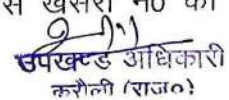 से खसरा नं० की
उपखण्ड अधिकारी
करौली (राज०)